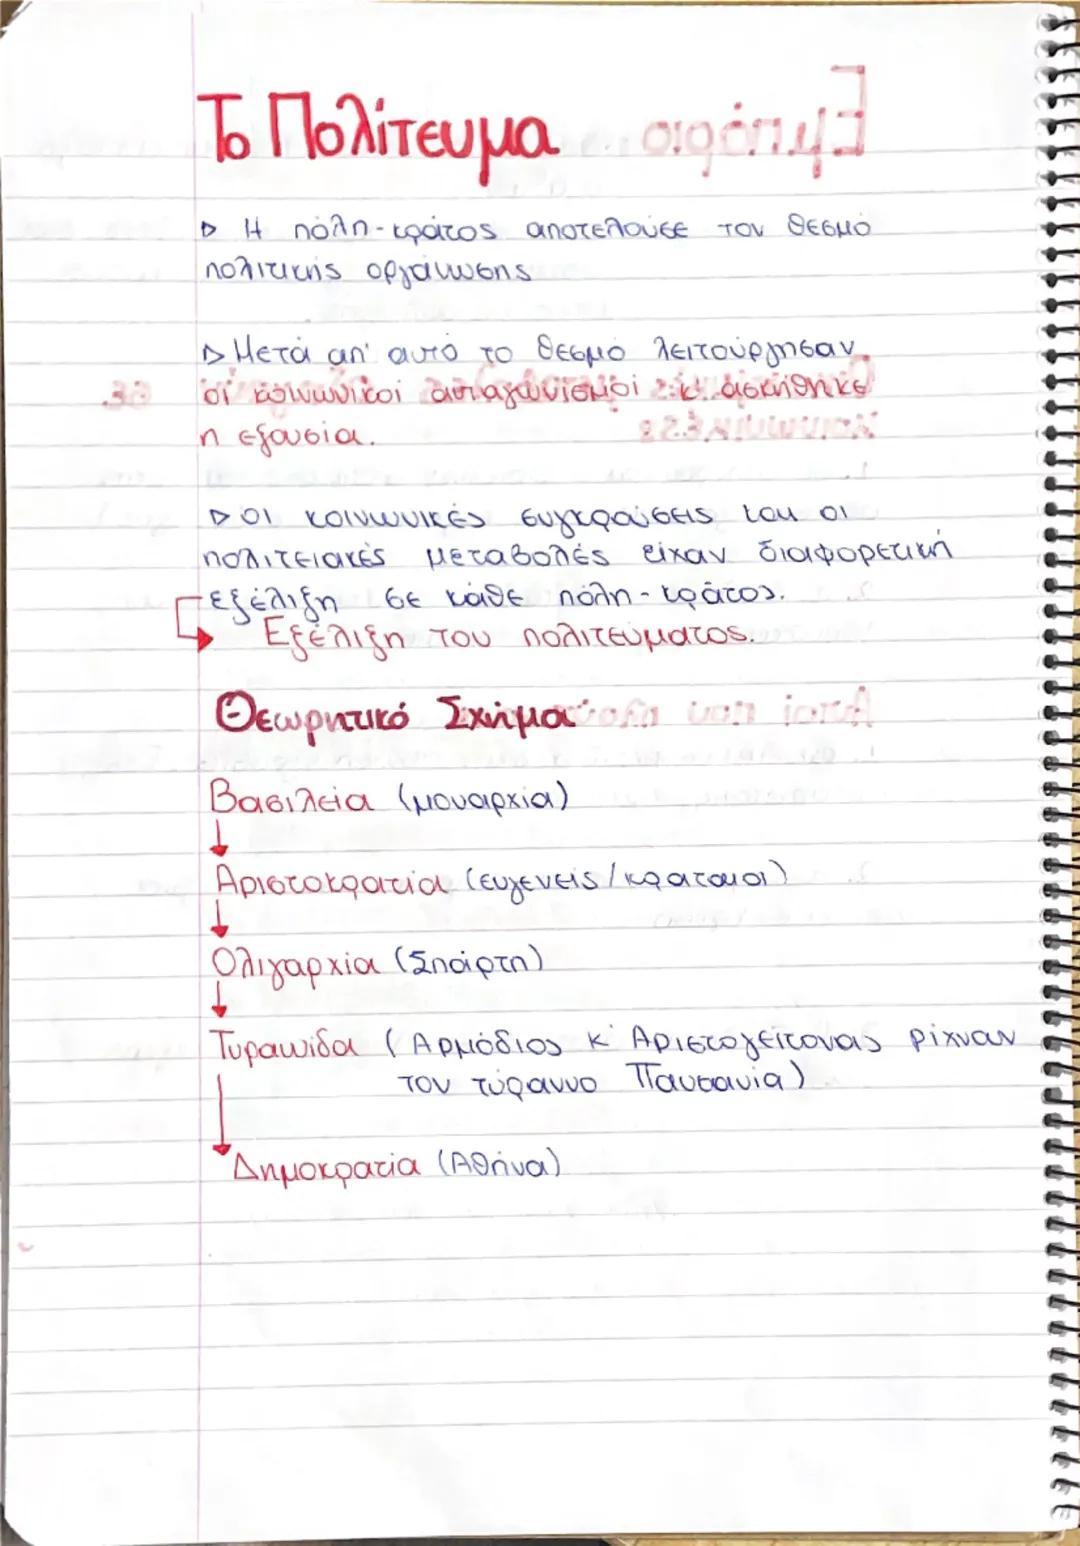 Το Πολίτευμα
▷ Η πόλη-κράτος αποτελούσε τον θεσμό
πολιτικής οργάνωσης
▷ Μετά απ' αυτό το θεσμό λειτούργησαν
οι κοινωνικοί ανταγωνισμοί κ' ασκήθηκε
η εξουσία.
▷ Οι κοινωνικές συγκρούσεις και οι
πολιτειακές μεταβολές είχαν διαφορετική
εξέλιξη σε κάθε πόλη-κράτος.
Εξέλιξη του πολιτεύματος.
Θεωρητικό Σχήμα
Βασιλεία (μοναρχία)
↓
Αριστοκρατία (ευγενείς/κραταιοι)
↓
Ολιγαρχία (Σπάρτη)
↓
Τυραννίδα (Αρμόδιος κ' Αριστογείτονας ρίχναν
τον τύραννο Παυσανία)
↓
Δημοκρατία (Αθήνα)